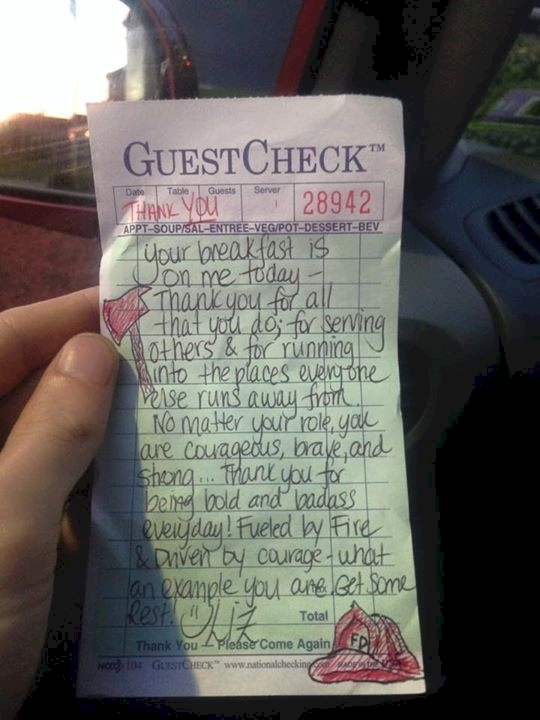 GUESTCHECK™
Date Table Guests Server
THANK YOU 28942
APPT-SOUP/SAL-ENTREE-VEG/POT-DESSERT-BEV
your breakfast is
on me today -
Thank you for all
that you do; for serving
others & for running
into the places everyone
else runs away from.
No matter your role, you
are courageous, brave, and
strong... Thank you for
being bold and badass
everyday! Fueled by Fire
& Driven by courage - what
an example you are. Get Some
Rest! " Liz
Total
FD
Thank You — Please Come Again
104 GUESTCHECK™ www.nationalchecking